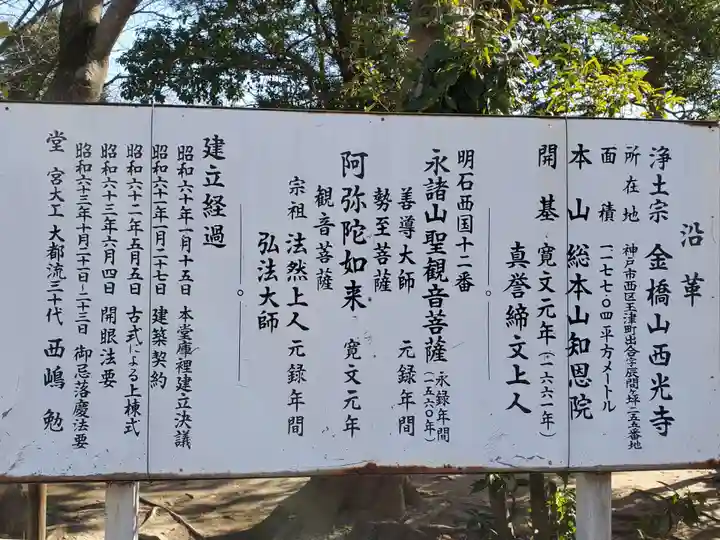 沿革
浄土宗 金橋山西光寺
所在地 神戸市西区玉津町出合字辰間ヶ坪二五五番地
面積 一一七七・〇四平方メートル
本山 総本山知恩院
開基 寛文元年(一六六一年)
真誉締文上人
明石西国十二番
永諸山聖観音菩薩 永録年間(一五六〇年)
善導大師 元録年間
勢至菩薩
阿弥陀如来 寛文元年
観音菩薩
宗祖 法然上人 元録年間
弘法大師
建立経過
昭和六十年一月十五日 本堂庫裡建立決議
昭和六十一年一月二十七日 建築契約
昭和六十一年五月五日 古式による上棟式
昭和六十三年六月四日 開眼法要
昭和六十三年十月二十一日〜二十三日 御忌落慶法要
堂 宮大工 大都流三十代 西嶋勉